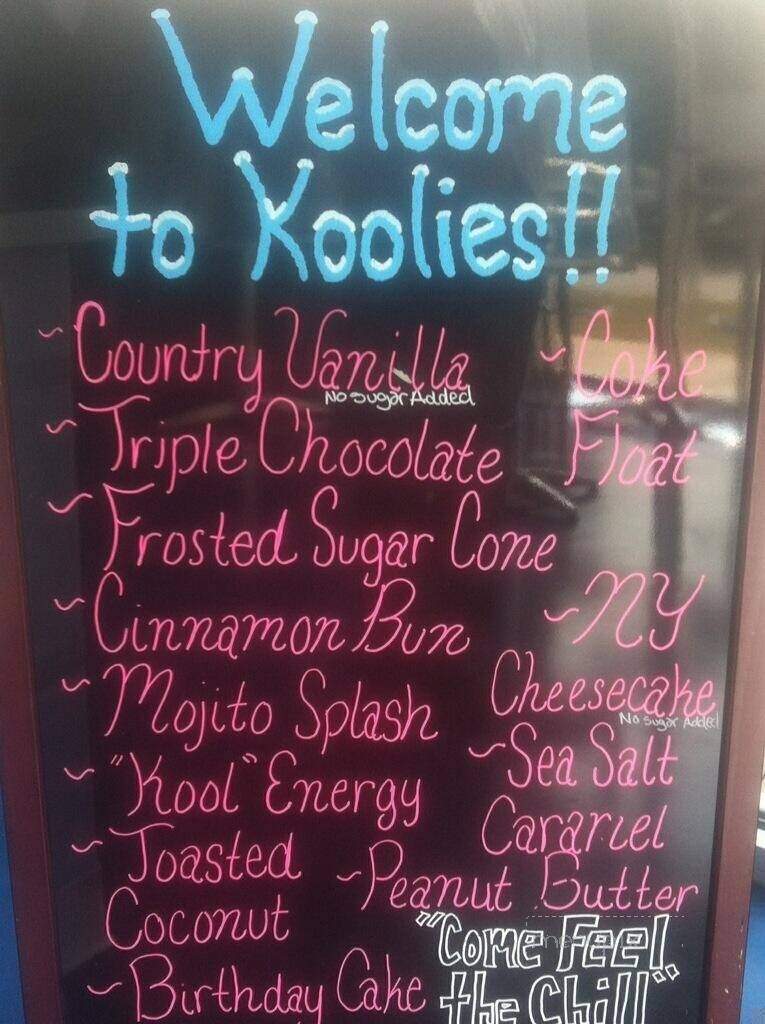 Welcome
to Koolies!!
~Country Vanilla
No Sugar Added
~Coke
Float
~Triple Chocolate
~Frosted Sugar Cone
~Cinnamon Bun
~NY
Cheesecake
No Sugar Added
~Mojito Splash
~Sea Salt
Caramel
~"Kool" Energy
~Toasted
Coconut
~Peanut Butter
~Birthday Cake
"Come Feel
the Chill"